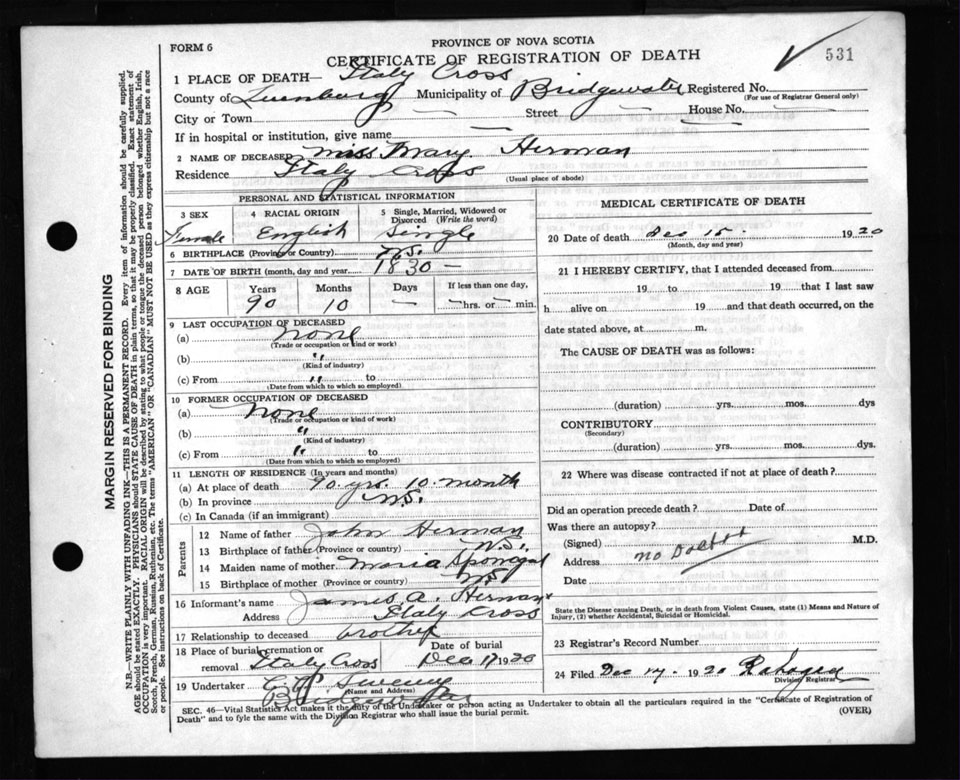 FORM 6
PROVINCE OF NOVA SCOTIA
CERTIFICATE OF REGISTRATION OF DEATH
531
1 PLACE OF DEATH— Italy Cross
County of Lunenburg Municipality of Bridgewater Registered No.
(For use of Registrar General only)
City or Town — Street — House No. —
If in hospital or institution, give name —
2 NAME OF DECEASED Miss Mary Herman
Residence Italy Cross
(Usual place of abode)
PERSONAL AND STATISTICAL INFORMATION
3 SEX Female
4 RACIAL ORIGIN English
5 Single, Married, Widowed or Divorced (Write the word) Single
6 BIRTHPLACE (Province or Country) N.S.
7 DATE OF BIRTH (month, day and year) 1830 —
8 AGE Years 90 Months 10 Days —
If less than one day,
— hrs. or — min.
9 LAST OCCUPATION OF DECEASED
(a) None
(Trade or occupation or kind or work)
(b) "
(Kind of industry)
(c) From " to
(Date from which to which so employed)
10 FORMER OCCUPATION OF DECEASED
(a) None
(Trade or occupation or kind of work)
(b) "
(Kind of industry)
(c) From " to
(Date from which to which so employed)
11 LENGTH OF RESIDENCE (In years and months)
(a) At place of death 90 yrs. 10 month
(b) In province N.S.
(c) In Canada (if an immigrant)
Parents
12 Name of father John Herman
13 Birthplace of father (Province or country) N.S.
14 Maiden name of mother Maria
15 Birthplace of mother (Province or country) N.S.
16 Informant's name James A. Herman
Address Italy Cross
17 Relationship to deceased brother
18 Place of burial, cremation or removal Italy Cross
Date of burial Dec 17 1920
19 Undertaker Sweeny
(Name and Address)
MEDICAL CERTIFICATE OF DEATH
20 Date of death Dec 15. 1920
(Month, day and year)
21 I HEREBY CERTIFY, that I attended deceased from
19 to 19 that I last saw
h alive on 19 and that death occurred, on the
date stated above, at m.
The CAUSE OF DEATH was as follows:
(duration) yrs. mos. dys
CONTRIBUTORY
(Secondary)
(duration) yrs. mos. dys.
22 Where was disease contracted if not at place of death?
Did an operation precede death? Date of
Was there an autopsy?
(Signed) M.D.
Address no Doctor
Date
State the Disease causing Death, or in death from Violent Causes, state (1) Means and Nature of
Injury, (2) whether Accidental, Suicidal or Homicidal.
23 Registrar's Record Number
24 Filed Dec 17. 1920
Division Registrar
SEC. 46—Vital Statistics Act makes it the duty of the Undertaker or person acting as Undertaker to obtain all the particulars required in the "Certificate of Registration of
Death" and to fyle the same with the Division Registrar who shall issue the burial permit.
(OVER)
MARGIN RESERVED FOR BINDING
N.B.—WRITE PLAINLY WITH UNFADING INK—THIS IS A PERMANENT RECORD. Every item of information should be carefully supplied.
AGE should be stated EXACTLY. PHYSICIANS should STATE CAUSE OF DEATH in plain terms, so that it may be properly classified. Exact statement of
OCCUPATION is very important. RACIAL ORIGIN will be described by stating to what people or tongue the deceased person belonged whether English, Irish,
Scotch, French, German, Russian, Ruthenian, etc. The terms "AMERICAN" OR "CANADIAN" MUST NOT BE USED as they express citizenship but not a race
or people. See instructions on back of Certificate.